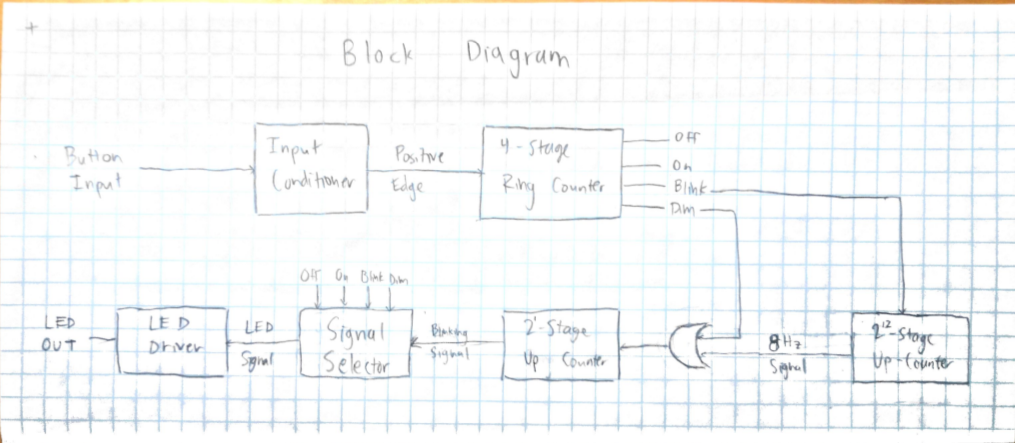 Block Diagram
Button
Input
Input
Conditioner
Positive
Edge
4-Stage
Ring Counter
Off
On
Blink
Dim
Off On Blink Dim
LED
OUT
LED
Driver
LED
Signal
Signal
Selector
Blinking
Signal
2¹-Stage
Up Counter
8Hz
Signal
2¹²-Stage
Up-Counter